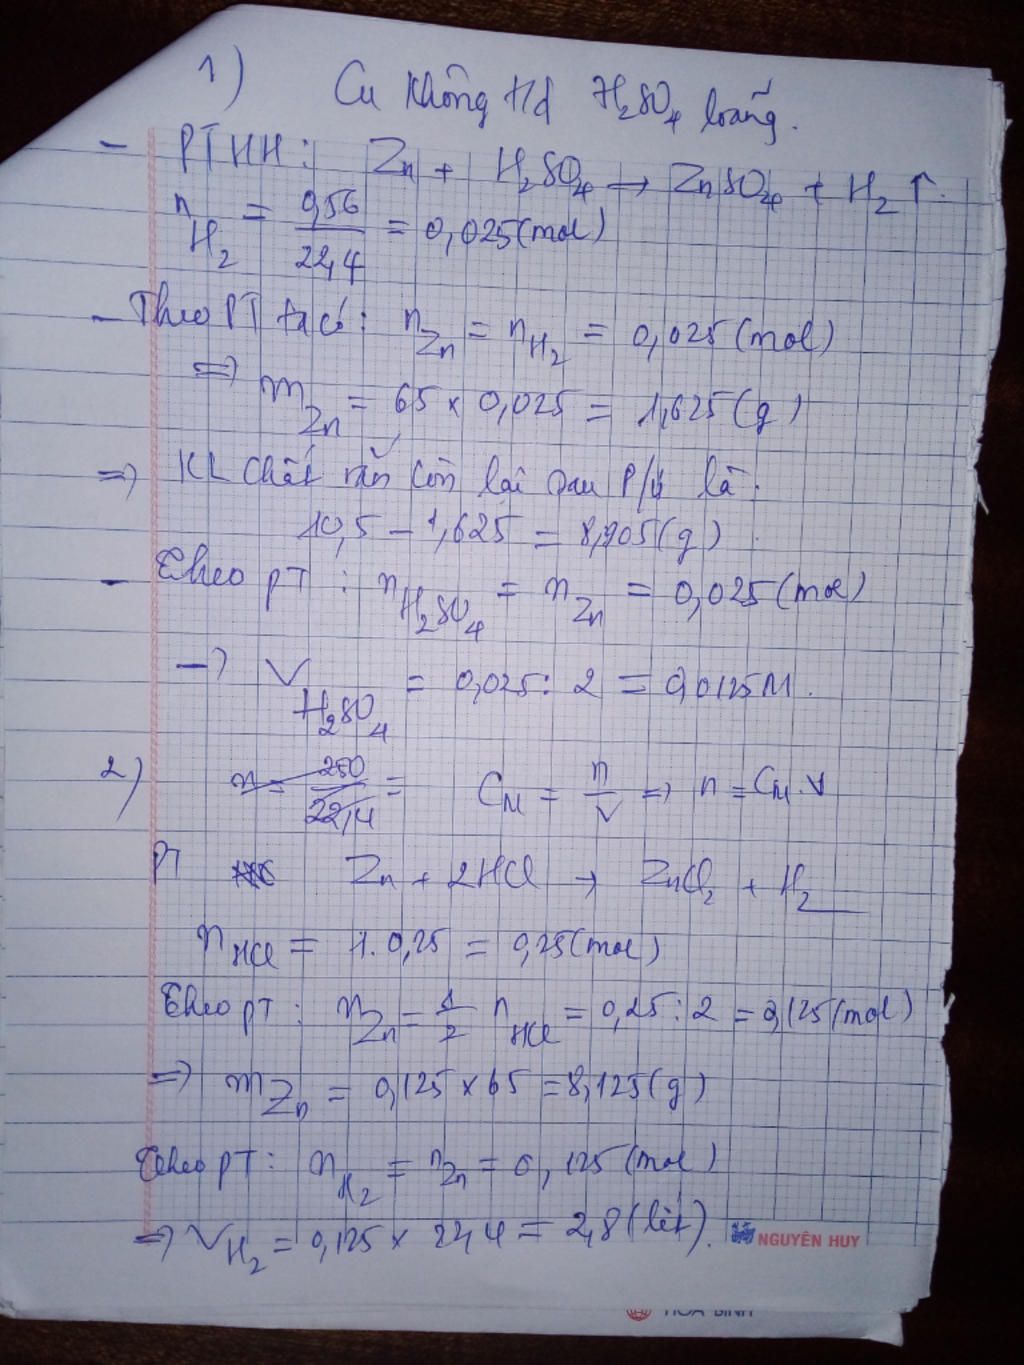 1) Cu không td H₂SO₄ loãng.
- PTHH: Zn + H₂SO₄ → ZnSO₄ + H₂ ↑.
n_H₂ = 0,56 / 22,4 = 0,025 (mol)
- Theo PT ta có: n_Zn = n_H₂ = 0,025 (mol)
=> m_Zn = 65 × 0,025 = 1,625 (g)
=> KL chất rắn còn lại sau P/ứ là:
10,5 - 1,625 = 8,905 (g).
- Theo pT: n_H₂SO₄ = n_Zn = 0,025 (mol)
-> V_H₂SO₄ = 0,025 : 2 = 0,0125M.
2) n = 250 / 22,4 = C_M = n / V => n = C_M . V
PT Zn + 2HCl → ZnCl₂ + H₂
n_HCl = 1. 0,25 = 0,25 (mol)
Theo pT: n_Zn = 1/2 n_HCl = 0,25 : 2 = 0,125 (mol)
=> m_Zn = 0,125 × 65 = 8,125 (g)
Theo pT: n_H₂ = n_Zn = 0,125 (mol)
=> V_H₂ = 0,125 × 22,4 = 2,8 (lít).
NGUYÊN HUY